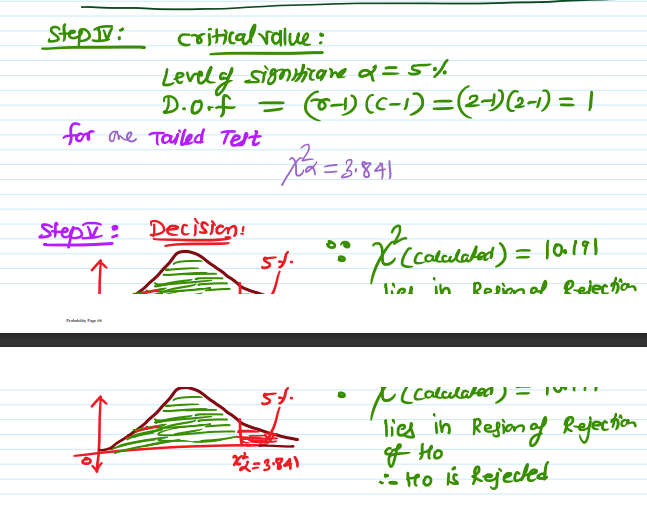 Step IV: Critical value:
Level of significane α = 5%
D.o.f = (r-1)(c-1) = (2-1)(2-1) = 1
for one Tailed Test
χ²α = 3.841
Step V: Decision:
5%
∵ χ²(calculated) = 10.191
lies in Region of Rejection
Probability Page 66
χ²(calculated) = 10.191
5%
lies in Region of Rejection
of Ho
0 χ²α = 3.841
∴ Ho is Rejected